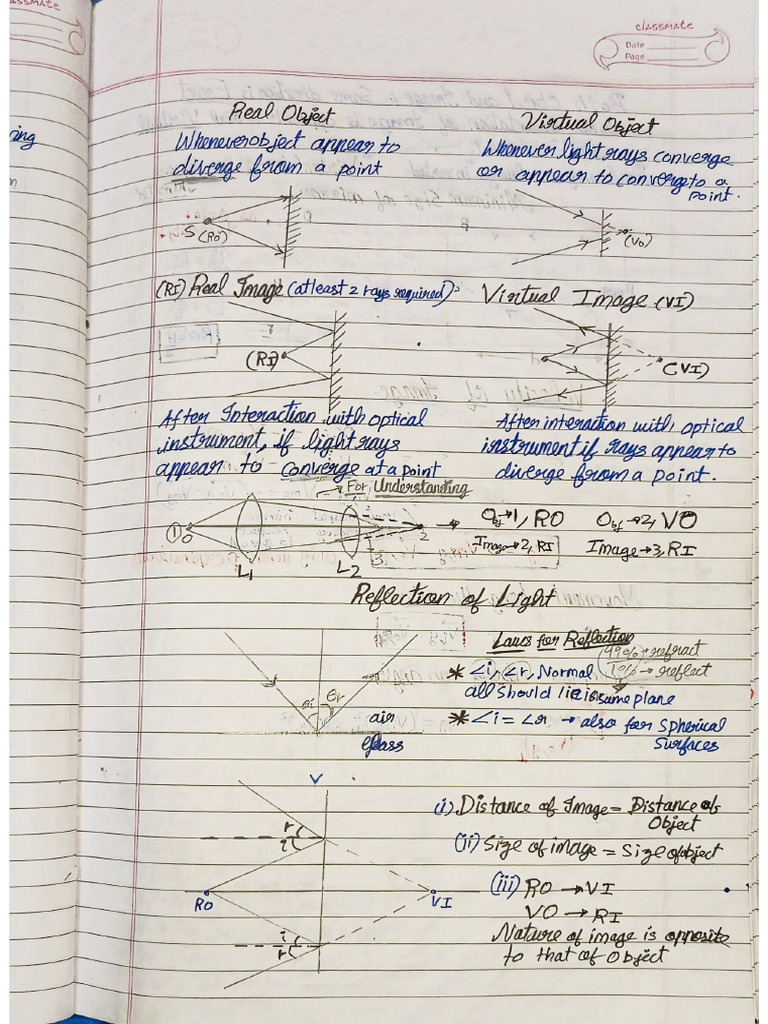 classmate
Date
Page
Real Object
Virtual Object
Whenever object appear to
diverge from a point
Whenever light rays converge
or appear to converge to a
point.
S (RO)
(VO)
(RI) Real Image (atleast 2 rays required):
Virtual Image (VI)
(RI)
(VI)
After Interaction with optical
instrument, if light rays
appear to converge at a point
After interaction with optical
instrument if rays appear to
diverge from a point.
→ For Understanding
① O
L1
L2
2
3
→ Obj→1, RO
Image→2, RI
Obj→2, VO
Image→3, RI
Reflection of Light
Laws for Reflection
99% → refract
1% → reflect
* ∠i, ∠r, Normal
all should lie is same plane
* ∠i = ∠r → also for Spherical
Surfaces
θi θr
air
glass
(i) Distance of Image = Distance of
Object
(ii) Size of image = Size of object
(iii) RO → VI
VO → RI
Nature of image is opposite
to that of Object
r
i
RO
VI
i
r